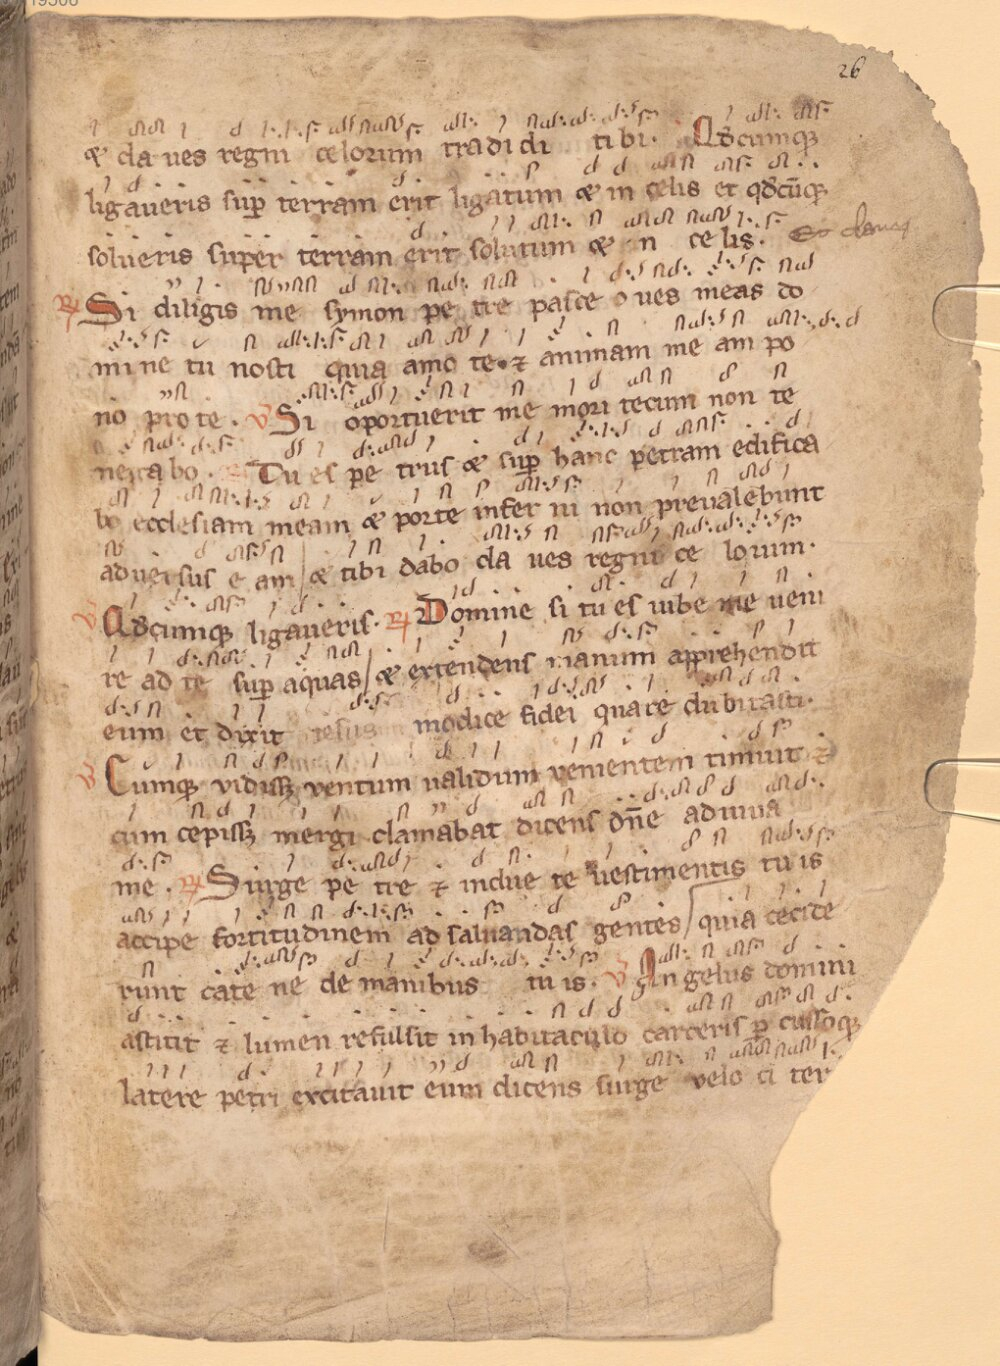 26
& cla ues regni celorum tradidi tibi. Qđcumqꝫ
ligaueris suꝑ terram erit ligatum & in celis et qđcūqꝫ
solueris super terram erit solutum & in ce lis. Et claues
℟ Si diligis me symon pe tre pasce oues meas do
mi ne tu nosti quia amo te. ⁊ animam me am po
no pro te. ℣ Si oportuerit me mori tecum non te
negabo. Tu es pe trus & suꝑ hanc petram edifica
bo ecclesiam meam & porte infer ni non preualebunt
aduersus e am & tibi dabo cla ues regni ce lorum.
℣ Qđcumqꝫ ligaueris. ℟ Domine si tu es iube me ueni
re ad te suꝑ aquas & extendens manum apprehendit
eum et dixit iesus modice fidei quare dubitasti.
℣ Cumqꝫ uidissꝫ uentum ualidum uenientem timuit ⁊
cum cepissꝫ mergi clamabat dicens dn̄e adiuua
me. ℟ Surge pe tre ⁊ indue te uestimentis tu is
accipe fortitudinem ad saluandas gentes quia cecide
runt cate ne de manibus tu is. ℣ Angelus domini
astitit ⁊ lumen refulsit in habitaculo carceris ꝑcussoqꝫ
latere petri excitauit eum dicens surge uelo ci ter